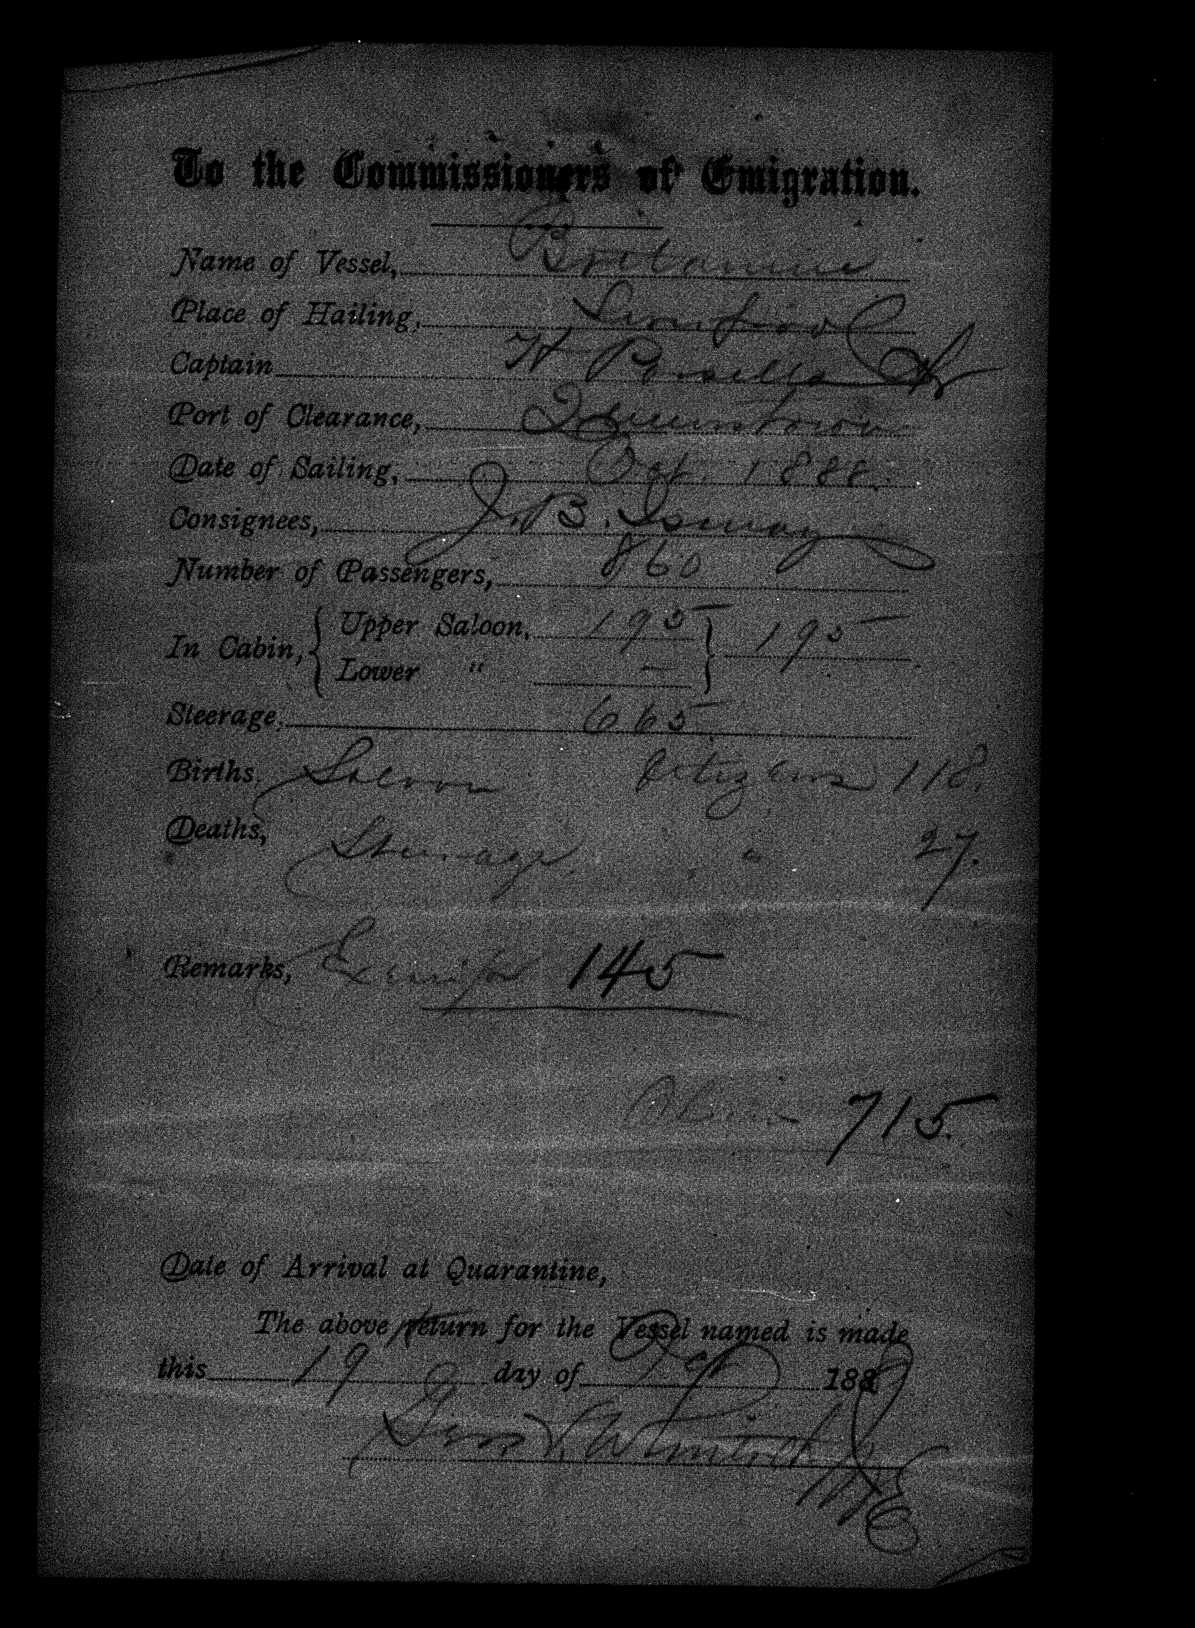 To the Commissioners of Emigration.
Name of Vessel, Britannic
Place of Hailing, Liverpool
Captain H Parsell
Port of Clearance, Queenstown
Date of Sailing, Oct. 1888.
Consignees, J. B. Ismay
Number of Passengers, 860
In Cabin, { Upper Saloon, 195 } 195
Lower " —
Steerage, 665
Births, Saloon Citizens 118.
Deaths, Steerage " 27.
Remarks, Exempt 145
Aliens 715.
Date of Arrival at Quarantine,
The above return for the Vessel named is made
this 19 day of Oct 188
Geo V. W